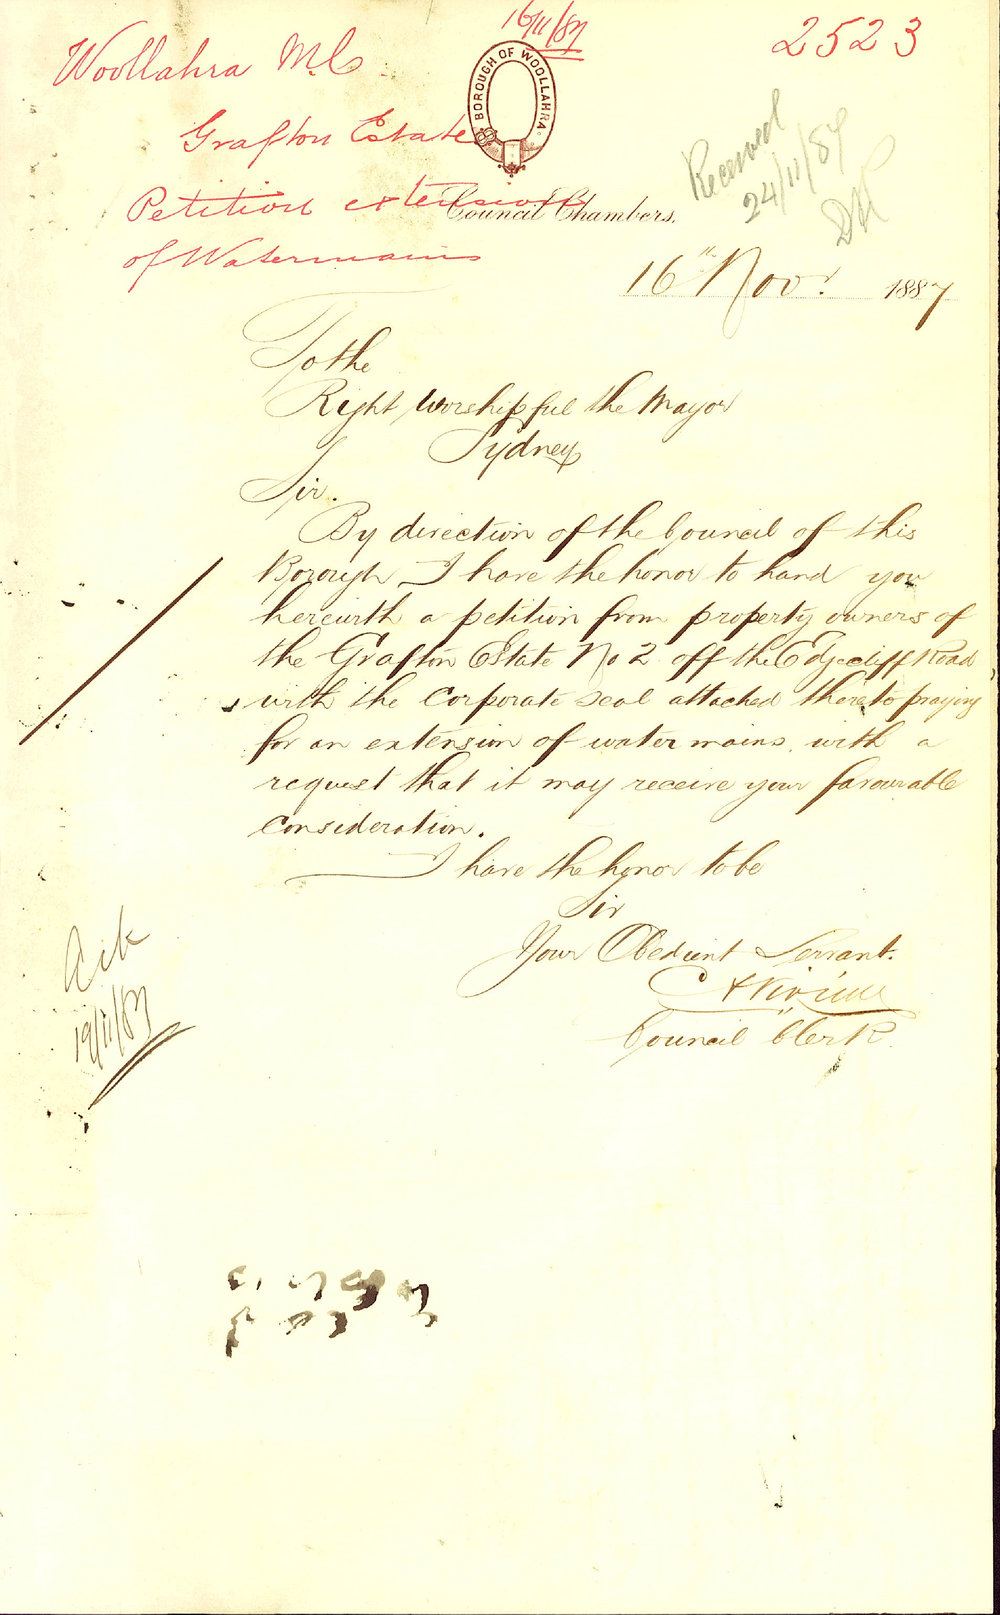 16/11/87
2523
Woollahra M.C.
Grafton Estate
Petition extension
of Watermains
BOROUGH OF WOOLLAHRA
Council Chambers,
Received
24/11/87
16th Nov. 1887
To the
Right Worshipful the Mayor
Sydney
Sir.
By direction of the Council of this
Borough I have the honor to hand you
herewith a petition from property owners of
the Grafton Estate No 2 off the Edgecliff Road
with the corporate seal attached thereto praying
for an extension of water mains, with a
request that it may receive your favourable
consideration.
I have the honor to be
Sir
Your Obedient Servant.
Council Clerk
Ack
19/11/87